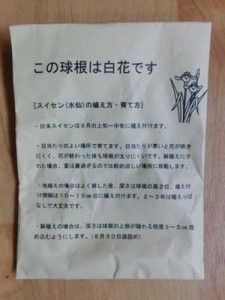 この球根は白花です
[スイセン(水仙)の植え方・育て方]
・日本スイセンは9月の上旬~中旬に植え付けます。
・日当たりのよい場所で育てます。日当たりが悪いと花が咲き
にくく、花が終わった後も球根が太りにくいです。鉢植えにさ
れた場合、夏は暑過ぎるので比較的涼しい場所に移動します。
・地植えの場合はよく耕した後、深さは球根の高さ位、植え付
け間隔は10~15cm位に植え付けます。2~3年は植えっぱ
なしで大丈夫です。
・鉢植えの場合は、深さは球根の上部が隠れる程度3~5cm埋
め込むようにします。(8月30日袋詰め)